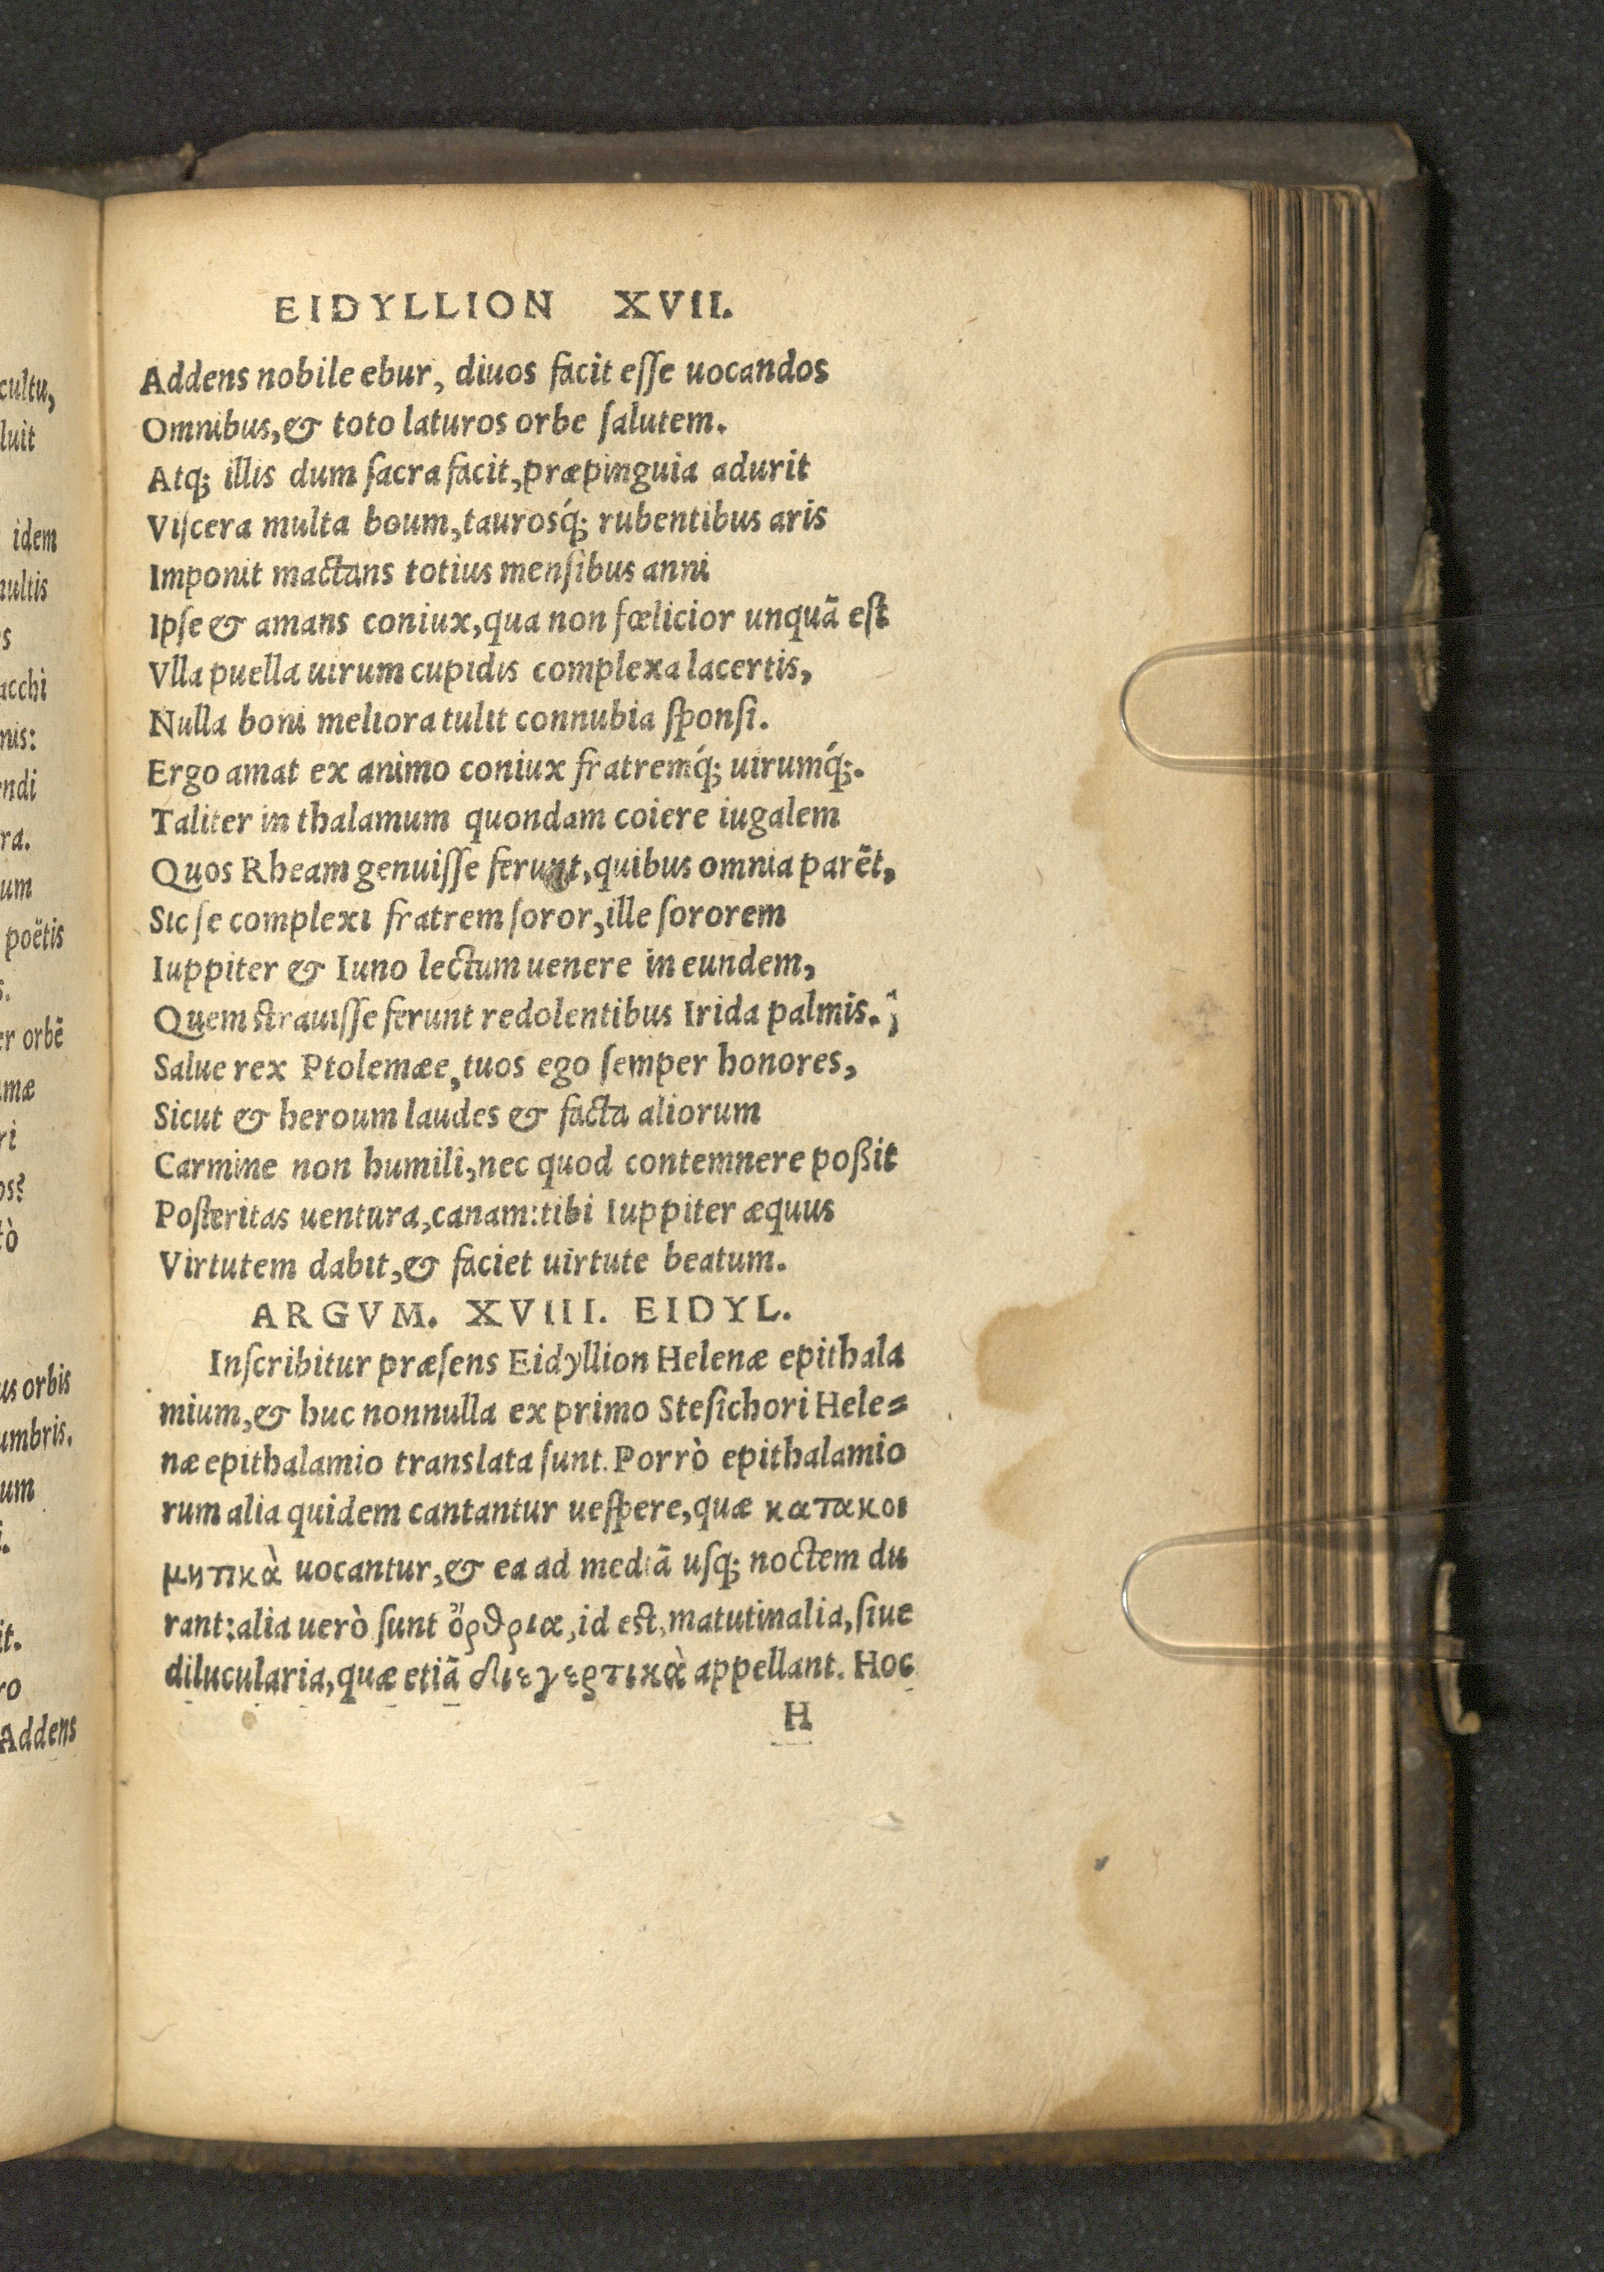 cultu,
luit
idem
multis
s
acchi
nis:
endi
ra.
um
poëtis
s.
er orbē
mæ
ri
os?
tò
us orbis
umbris.
um
i.
it.
ro
Addens
EIDYLLION XVII.
Addens nobile ebur, diuos facit eſſe uocandos
Omnibus,& toto laturos orbe ſalutem.
Atq; illis dum ſacra facit,præpinguia adurit
Viſcera multa boum,taurosq́; rubentibus aris
Imponit mactans totius menſibus anni
Ipſe & amans coniux,qua non fœlicior unquā eſt
Vlla puella uirum cupidis complexa lacertis,
Nulla boni meliora tulit connubia ſponſi.
Ergo amat ex animo coniux fratremq́; uirumq́;.
Taliter in thalamum quondam coiere iugalem
Quos Rheam genuiſſe ferunt,quibus omnia parēt,
Sic ſe complexi fratrem ſoror,ille ſororem
Iuppiter & Iuno lectum uenere in eundem,
Quem ſtrauiſſe ferunt redolentibus Irida palmis.
Salue rex Ptolemæe,tuos ego ſemper honores,
Sicut & heroum laudes & facta aliorum
Carmine non humili,nec quod contemnere poßit
Poſteritas uentura,canam:tibi Iuppiter æquus
Virtutem dabit,& faciet uirtute beatum.
ARGVM. XVIII. EIDYL.
Inſcribitur præſens Eidyllion Helenæ epithala
mium,& huc nonnulla ex primo Steſichori Hele=
næ epithalamio translata ſunt. Porrò epithalamio
rum alia quidem cantantur ueſpere,quæ κατακοι
μητικὰ uocantur,& ea ad mediā uſq; noctem du
rant:alia uerò ſunt ὄρθρια,id eſt,matutinalia,ſiue
dilucularia,quæ etiā διεγερτικὰ appellant. Hoc
H